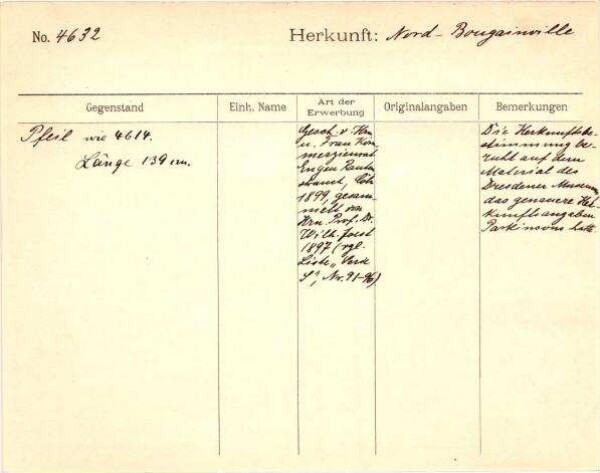 No. 4632
Herkunft: Nord-Bougainville
Gegenstand
Einh. Name
Art der
Erwerbung
Originalangaben
Bemerkungen
Pfeil wie 4614.
Länge 139 cm.
Gesch. v. Hrn
u. Frau Kom-
merzienrat
Eugen Rauten-
strauch, Cöln
1899, gesam-
melt von
Hrn. Prof. Dr.
Wilh. Joest
1897 (vgl.
Liste
Nr. 91-96)
Die Herkunftsbe-
stimmung be-
ruht auf dem
Material des
Dresdener Museums,
das genauere Her-
kunftsangaben
Parkinsons hatte.